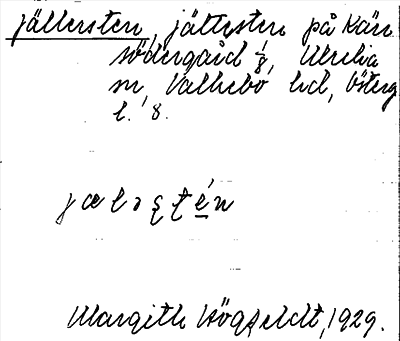 jällersten, jättesten på Kärr
södergård 1/8, Ulrika
sn, Valkebo hd, Österg
l. 8.
jælɔstén
Margith Högfeldt, 1929.